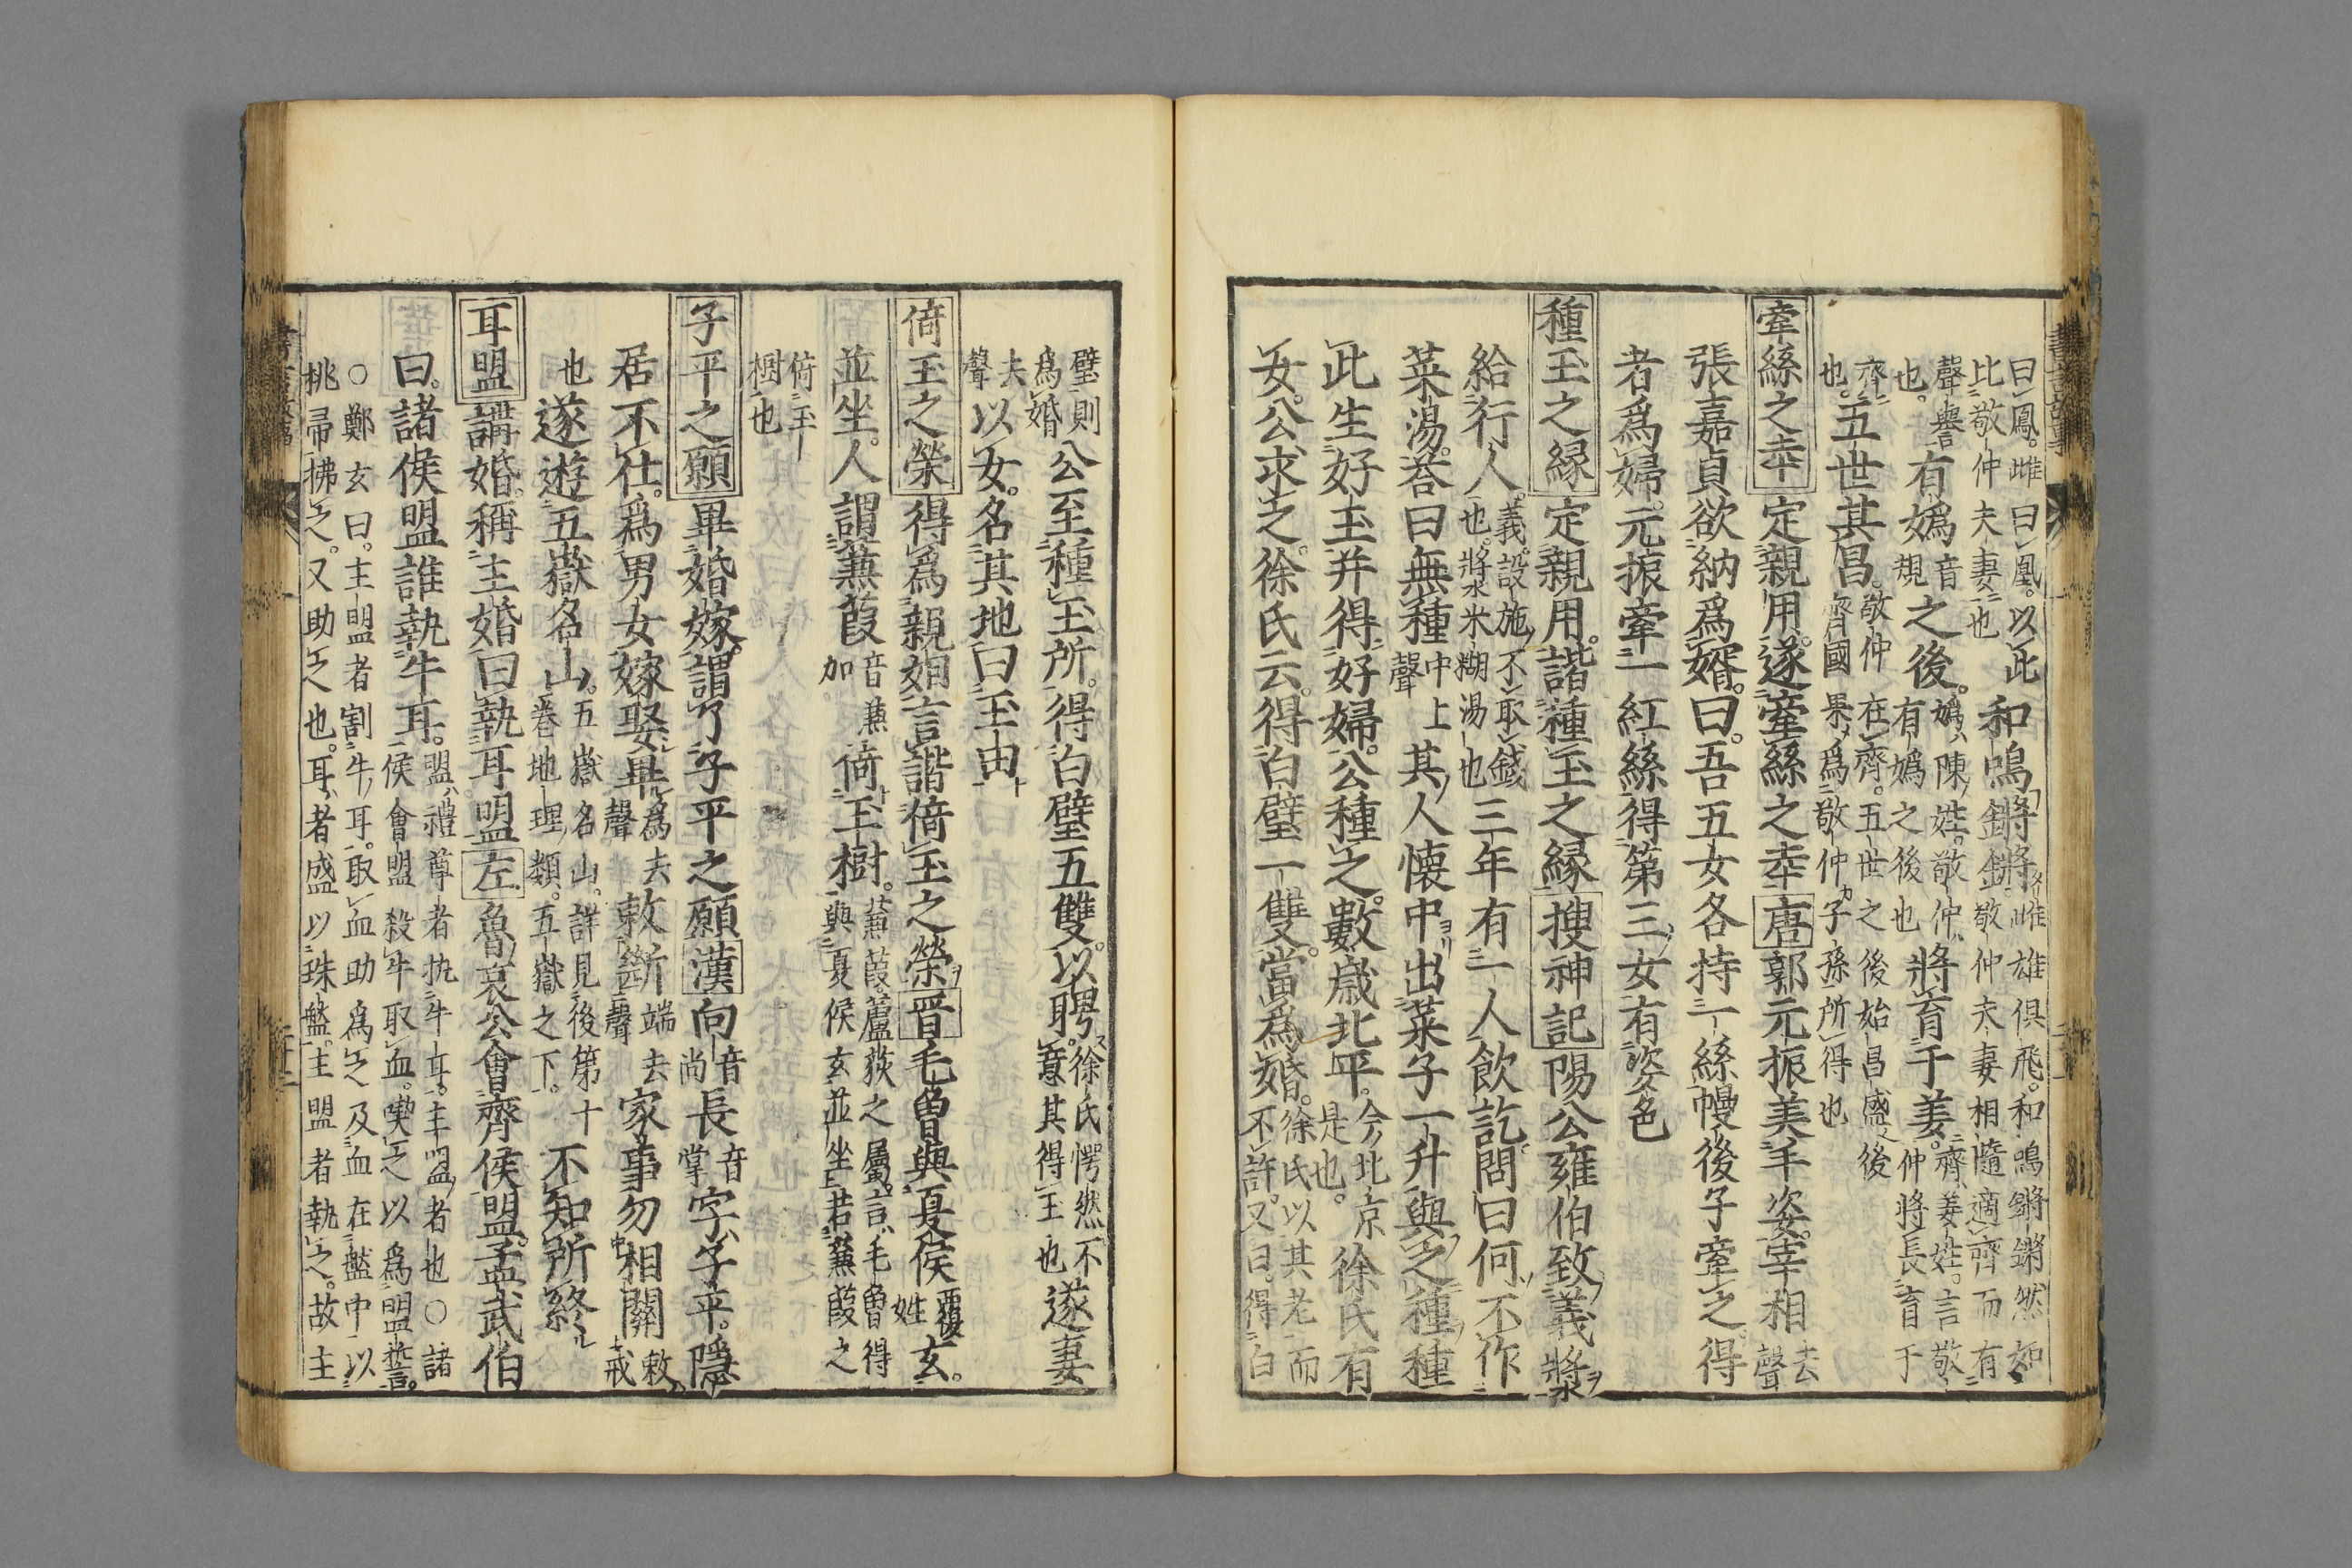 曰鳳。雌曰凰。以此
比敬仲夫妻也
和鳴鏘鏘雌雄俱飛。和鳴鏘鏘然如
敬仲夫妻相隨適齊而有
聲譽
也。
有嬀音
規
之後。嬀陳姓。敬仲
有嬀之後也
將育于姜。齊姜姓。言敬
仲將長育于
齊
也。
五世其昌。敬仲在齊。五世之後始昌盛後
齊國果為敬仲子孫所得也
牽絲之幸定親用。遂牽絲之幸唐郭元振美丰姿。宰相去
聲
張嘉貞欲納爲婿。曰。吾五女各持一絲幔後子牽之。得
者爲婦。元振牽一紅絲得第三女有姿色
種玉之緣定親用。諧種玉之緣搜神記陽公雍伯致義漿
給行人。義。設施不取錢
也。漿米糊湯也
三年有一人飲訖問曰何不作
菜湯。荅曰無種中上
聲
其人懷中出菜子一升與之種種
此生好玉并得好婦。公種之。數歲北平。今北京
是也。
徐氏有
女。公求之。徐氏云。得白璧一雙。當爲婚。徐氏以其老而
不許。又曰。得白
璧則
爲婚
公至種玉所。得白璧五雙。以聘。徐氏愕然不
意其得玉也
遂妻
去
聲
以女。名其地曰玉田
倚玉之榮得爲親姻言諧倚玉之榮晋毛曾與夏侯覆
姓
玄。
並坐。人謂蒹葭音蒹
加
倚玉樹。蒹葭。蘆荻之屬。言毛曾得
與夏侯玄並坐若蒹葭之
倚玉
樹也
子平之願畢婚嫁。謂了子平之願漢向音
尚
長音
掌
字子平。隱
居不仕。爲男女嫁娶畢爲去
聲
敕斷端去
聲
家事勿相關敕
戒
也
遂遊五嶽名山。五嶽名山。詳見後第十
卷地理類。五嶽之下。
不知所終
耳盟講婚。稱主婚曰執耳盟左魯哀公會齊侯盟。孟武伯
曰。諸侯盟誰執牛耳。盟禮尊者执牛耳。主盟者也○諸
侯會盟殺牛取血。㰱之以爲盟誓。
○鄭玄曰。主盟者割牛耳。取血助爲之及血在盤中以
桃帚拂之。又助之也。耳者盛以珠盤。主盟者執之。故主